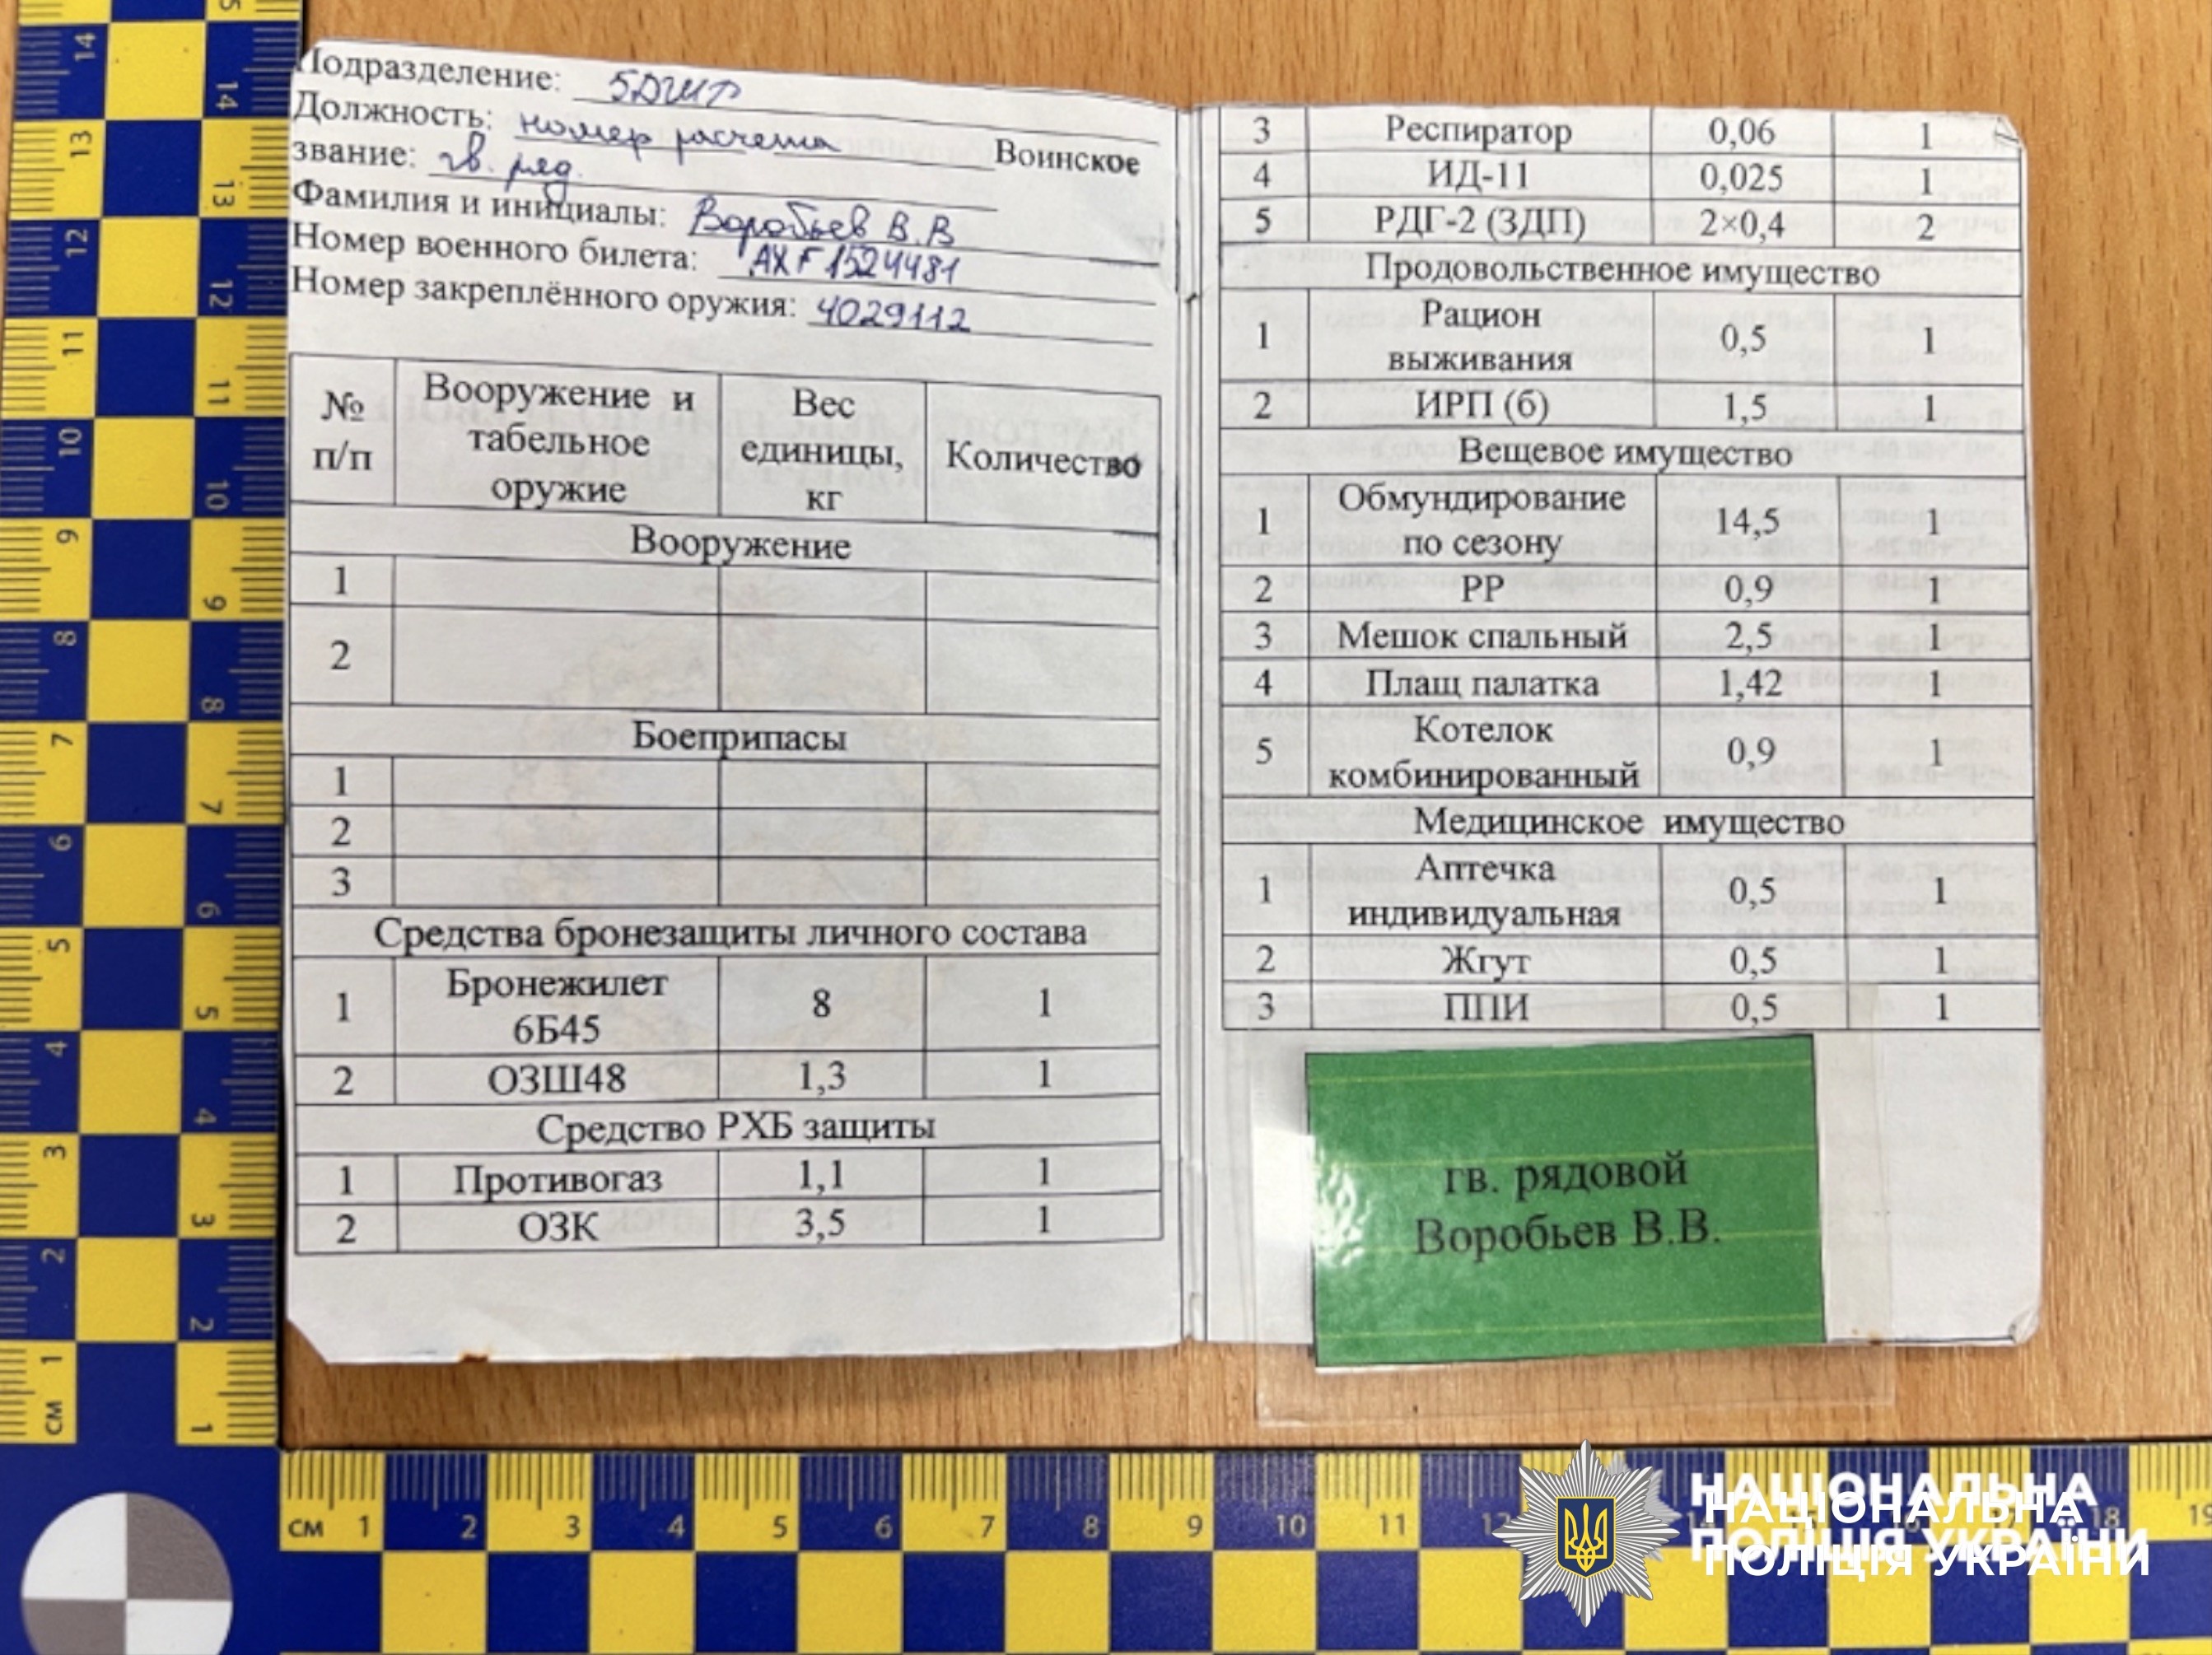 Подразделение: 5ДШР
Должность: номер расчета Воинское
звание: гв. ряд.
Фамилия и инициалы: Воробьев В.В
Номер военного билета: АХF1524481
Номер закреплённого оружия: 4029112
№ п/п Вооружение и табельное оружие Вес единицы, кг Количество
Вооружение
1
2
Боеприпасы
1
2
3
Средства бронезащиты личного состава
1 Бронежилет 6Б45 8 1
2 ОЗШ48 1,3 1
Средство РХБ защиты
1 Противогаз 1,1 1
2 ОЗК 3,5 1
3 Респиратор 0,06 1
4 ИД-11 0,025 1
5 РДГ-2 (ЗДП) 2×0,4 2
Продовольственное имущество
1 Рацион выживания 0,5 1
2 ИРП (б) 1,5 1
Вещевое имущество
1 Обмундирование по сезону 14,5 1
2 РР 0,9 1
3 Мешок спальный 2,5 1
4 Плащ палатка 1,42 1
5 Котелок комбинированный 0,9 1
Медицинское имущество
1 Аптечка индивидуальная 0,5 1
2 Жгут 0,5 1
3 ППИ 0,5 1
гв. рядовой
Воробьев В.В.
14 13 12 11 10 9 8 7 6 5 4 3 2 1 см
14 13 12 11 10 9 8 7 6 5 4 3 2 1
см 1 2 3 4 5 6 7 8 9 10 11 12 18 19
НАЦІОНАЛЬНА
ПОЛІЦІЯ УКРАЇНИ